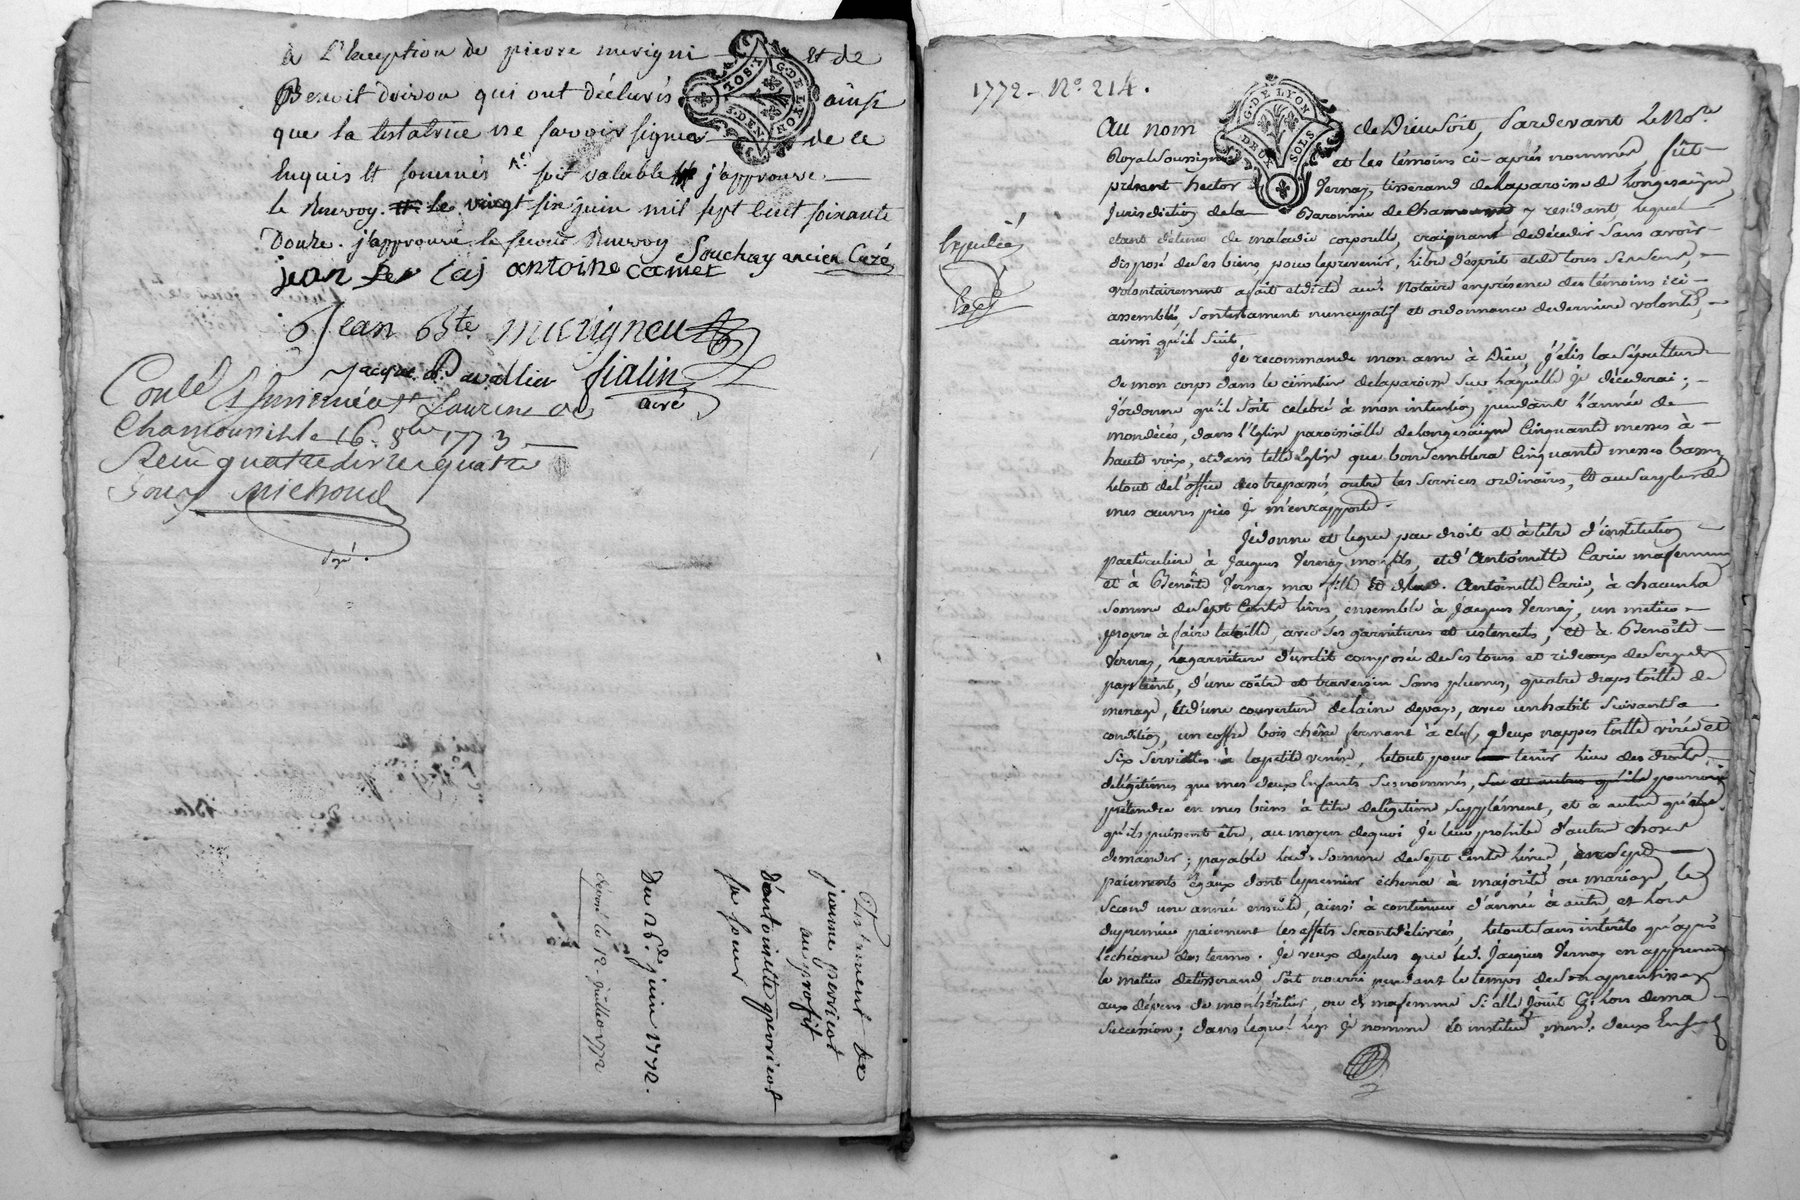 à L'Exception de pierre merigni et de
Benoit doiron qui ont déclarés ainsi
que la testatrice ne savoir signer de ce
Enquis et sommés soit valable j'approuve
le Renvoy. le vingt six juin mil sept cent soixante
Douze. j'approuve le second Renvoy Souchay ancien Curé
jean antoine camet
Jean Bte merigneux
Jacque Pavallier fialin
curé
Conlé
Chamounist le 16. 8bre 1773
Reçu quatre livres quatre
sous Michoud
Testament de
jeanne perricot
au profit
D'antoinette perricot
sa soeur
Du 26e juin 1772.
1772 - No. 214.
G. DE LYON
DEUX SOLS
Au nom de Dieu Soit, Pardevant Le No.re
Royal Soussigné et les témoins ci-après nommés, fût
présent hector Vernay, tisserand de la paroisse de Longessaigne
Jurisdiction de la Baronnie de Chamousset y résidant, lequel
étant détenu de maladie corporelle, craignant de décéder sans avoir
disposé de ses biens, pour le prévenir, libre d'esprit et de tous ses sens,
volontairement a fait et dicté aud. Notaire en présence des témoins ici
assemblés son testament nuncupatif et ordonnance de dernière volonté,
ainsi qu'il suit.
Expédiée
Je recommande mon ame à Dieu, j'élis la sépulture
de mon corps dans le cimetière de la paroisse sur laquelle Je décéderai;
J'ordonne qu'il soit célébré à mon intention pendant l'année de
mon décès, dans l'Eglise paroissialle de Longesaigne Cinquante messes à
haute voix, et dans telle Eglise que bon semblera Cinquante messes basses
le tout de l'office des trépassés, outre les services ordinaires, Et au surplus de
mes œuvres pies Je m'en rapporte.
Je donne et legue par droit et à titre d'institution
particulière à Jacques Vernay mon fils, et d'Antoinette Carie ma femme
et à Benoîte Vernay ma fille et de lad. Antoinette Carie, à chacun la
somme de sept Cents livres, ensemble à Jacques Vernay, un métier
propre à faire la toille, avec ses garnitures et ustencils, Et à Benoîte
Vernay, la garniture d'un lit composée de ses tours et rideaux de serge du
pays teint, d'une coêtre et traversin sans plumes, quatre draps toille de
menage, Et d'une couverture de laine du pays, avec un habit suivant sa
condition, un coffre bois chêne fermant à clef, deux nappes toille virée et
six serviettes à la petite venise, le tout pour tenir lieu des droits
de légitimes que mes deux Enfants susnommés, pourroient
prétendre en mes biens à titre de légitime supplément, et à autre
qu'ils puissent être, au moyen de quoi Je leur prohibe d'autre chose
demander; payable lad. somme de sept Cents livres, en sept
paiements égaux dont le premier échera à majorité ou mariage, le
second une année ensuite, ainsi à continuer d'année à autre, et lors
du premier paiement les effets seront délivrés, le tout sans intérêts qu'après
l'échéance des termes. Je veux de plus que led. Jacques Vernay en apprenant
le métier de tisserand soit nourri pendant le temps de son apprentissage
aux dépens de mon héritier, ou de ma femme si elle jouit lors de ma
succession; dans lequel legs Je nomme et institue mesd. deux Enfants